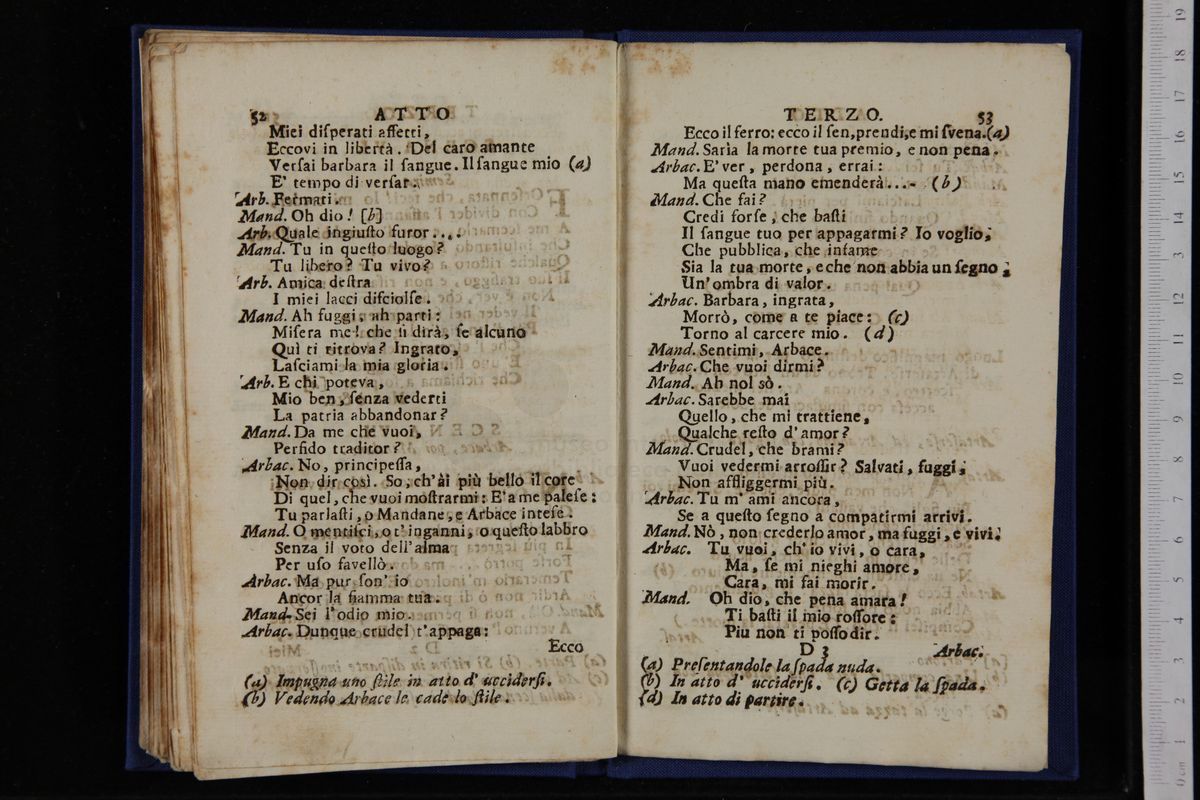 52 ATTO
Miei diſperati affetti,
Eccovi in libertà. Del caro amante
Verſai barbara il ſangue. Il ſangue mio (a)
E' tempo di verſar.
Arb. Fermati.
Mand. Oh dio! [b]
Arb. Quale ingiuſto furor....
Mand. Tu in queſto luogo?
Tu libero? Tu vivo?
Arb. Amica deſtra
I miei lacci diſciolſe.
Mand. Ah fuggi, ah parti:
Miſera me! che ſi dirà, ſe alcuno
Quì ti ritrova? Ingrato,
Laſciami la mia gloria.
Arb. E chi poteva,
Mio ben, ſenza vederti
La patria abbandonar?
Mand. Da me che vuoi,
Perfido traditor?
Arbac. No, principeſſa,
Non dir così. So, ch'ài più bello il core
Di quel, che vuoi moſtrarmi: E' a me paleſe:
Tu parlaſti, o Mandane, e Arbace inteſe.
Mand. O mentiſci, o t'inganni, o queſto labbro
Senza il voto dell'alma
Per uſo favellò.
Arbac. Ma pur ſon' io
Ancor la fiamma tua.
Mand. Sei l'odio mio.
Arbac. Dunque crudel t'appaga:
Ecco
(a) Impugna uno ſtile in atto d' ucciderſi.
(b) Vedendo Arbace le cade lo ſtile.
TERZO. 53
Ecco il ferro: ecco il ſen, prendi, e mi ſvena. (a)
Mand. Saria la morte tua premio, e non pena.
Arbac. E' ver, perdona, errai:
Ma queſta mano emenderà...- (b)
Mand. Che fai?
Credi forſe, che baſti
Il ſangue tuo per appagarmi? Io voglio,
Che pubblica, che infame
Sia la tua morte, e che non abbia un ſegno,
Un' ombra di valor.
Arbac. Barbara, ingrata,
Morrò, come a te piace: (c)
Torno al carcere mio. (d)
Mand. Sentimi, Arbace.
Arbac. Che vuoi dirmi?
Mand. Ah nol sò.
Arbac. Sarebbe mai
Quello, che mi trattiene,
Qualche reſto d' amor?
Mand. Crudel, che brami?
Vuoi vedermi arroſſir? Salvati, fuggi,
Non affliggermi più.
Arbac. Tu m' ami ancora,
Se a queſto ſegno a compatirmi arrivi.
Mand. Nò, non crederlo amor, ma fuggi, e vivi.
Arbac. Tu vuoi, ch' io vivi, o cara,
Ma, ſe mi nieghi amore,
Cara, mi fai morir.
Mand. Oh dio, che pena amara!
Ti baſti il mio roſſore:
Piu non ti poſſo dir.
D 3 Arbac.
(a) Preſentandole la ſpada nuda.
(b) In atto d' ucciderſi. (c) Getta la ſpada.
(d) In atto di partire.